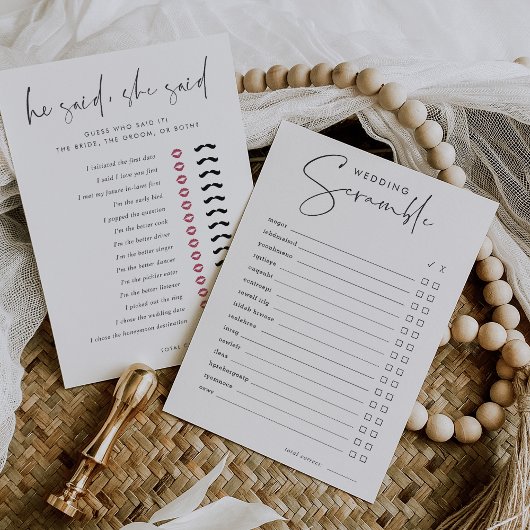 he said, she said
GUESS WHO SAID IT!
THE BRIDE, THE GROOM, OR BOTH?
I initiated the first date
I said I love you first
I met my future in-laws first
I'm the early bird
I popped the question
I'm the better cook
I'm the better driver
I'm the better singer
I'm the better dancer
I'm the pickier eater
I'm the better listener
I picked out the ring
I chose the wedding date
I chose the honeymoon destination
TOTAL
WEDDING
Scramble
✓ X
mogor
iebdmained
yoonhmeno
uqtboye
caqnubt
centroepi
rewell itfg
isldah brwiose
reslehrea
intsg
eowlsfr
ileas
hgrehergastp
rymenoce
oswv
total correct: